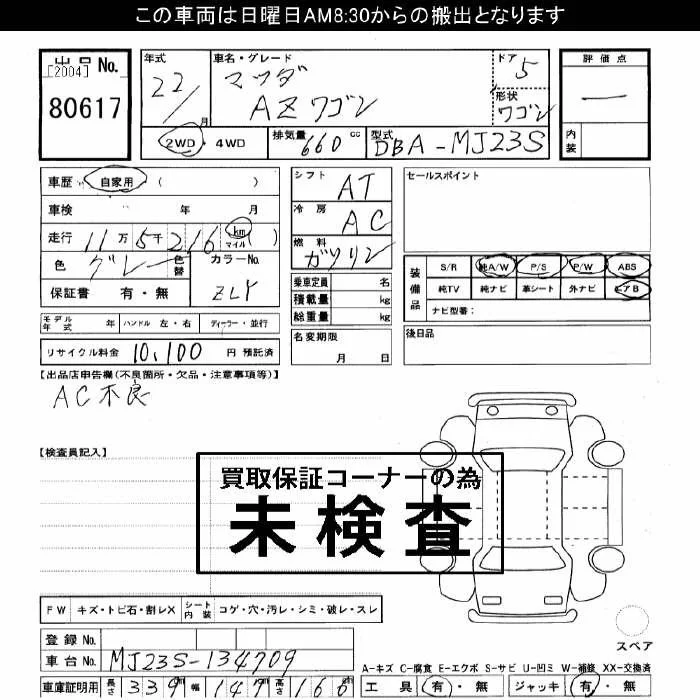 この車両は日曜日AM8:30からの搬出となります
出品No.
[2004]
80617
年式 22/ 月
車名・グレード マツダ AZワゴン
ドア 5
形状 ワゴン
評価点 —
内装
2WD・4WD
排気量 660 cc
型式 DBA-MJ23S
車歴 自家用 ( )
車検 年 月
走行 11万5千216 km マイル ( )
色 グレー 色替 カラーNo. ZLY
保証書 有・無
シフト AT
冷房 AC
燃料 ガソリン
乗車定員 名
積載量 kg
総重量 kg
セールスポイント
装備品
S/R 純A/W P/S P/W ABS
純TV 純ナビ 革シート 外ナビ エアB
ナビ型番:
モデル年式 年 ハンドル 左・右 ディーラー・並行
名変期限 月 日
後日品
リサイクル料金 10,100 円 預託済
【出品店申告欄(不良個所・欠品・注意事項等)】
AC不良
【検査員記入】
買取保証コーナーの為
未検査
FW キズ・トビ石・割レX シート内装 コゲ・穴・汚レ・シミ・破レ・スレ
登録No.
車台No. MJ23S-134709
車庫証明用 長さ 339 cm 幅 147 cm 高さ 166 cm
スペア
A-キズ C-腐食 E-エクボ S-サビ U-凹ミ W-補修 XX-交換済
工具 有・無 ジャッキ 有・無